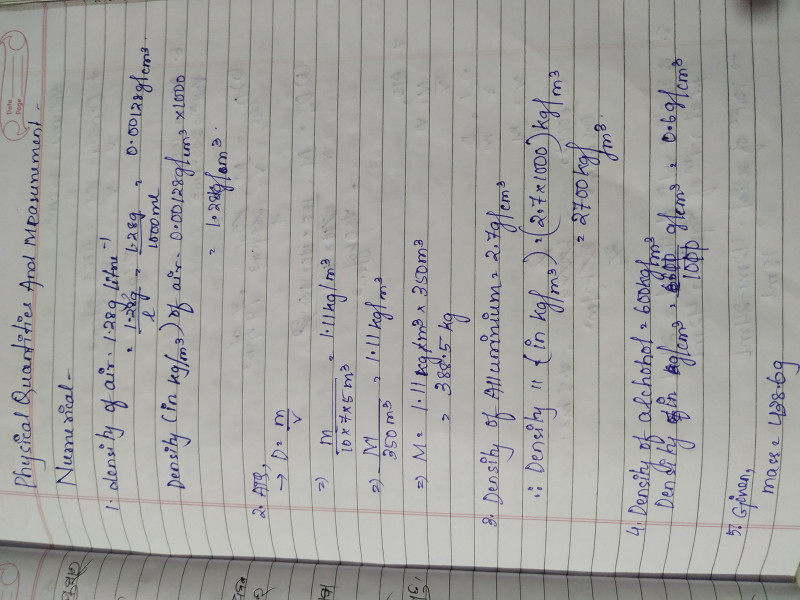 Date
Page
Physical Quantities And Measurement -
Numerical -
1. density of air = 1.28g litre⁻¹
= 1.28g/l = 1.28g/1000ml = 0.00128g/cm³.
Density (in kg/m³) of air = 0.00128g/cm³ × 1000
= 1.28g/cm³.
2. ATQ,
→ D = m/v
⇒ m/10×7×5m³ = 1.11kg/m³
⇒ M/350m³ = 1.11kg/m³
⇒ M = 1.11kg/m³ × 350m³
= 388.5 kg
3. Density of Alluminium = 2.7g/cm³
∴ Density " (in kg/m³) = (2.7×1000)kg/m³
= 2700kg/m³.
4. Density of alchohol = 600kg/m³
Density in g/cm³ = 600/1000 g/cm³ = 0.6g/cm³
5. Given,
mass = 438.6g